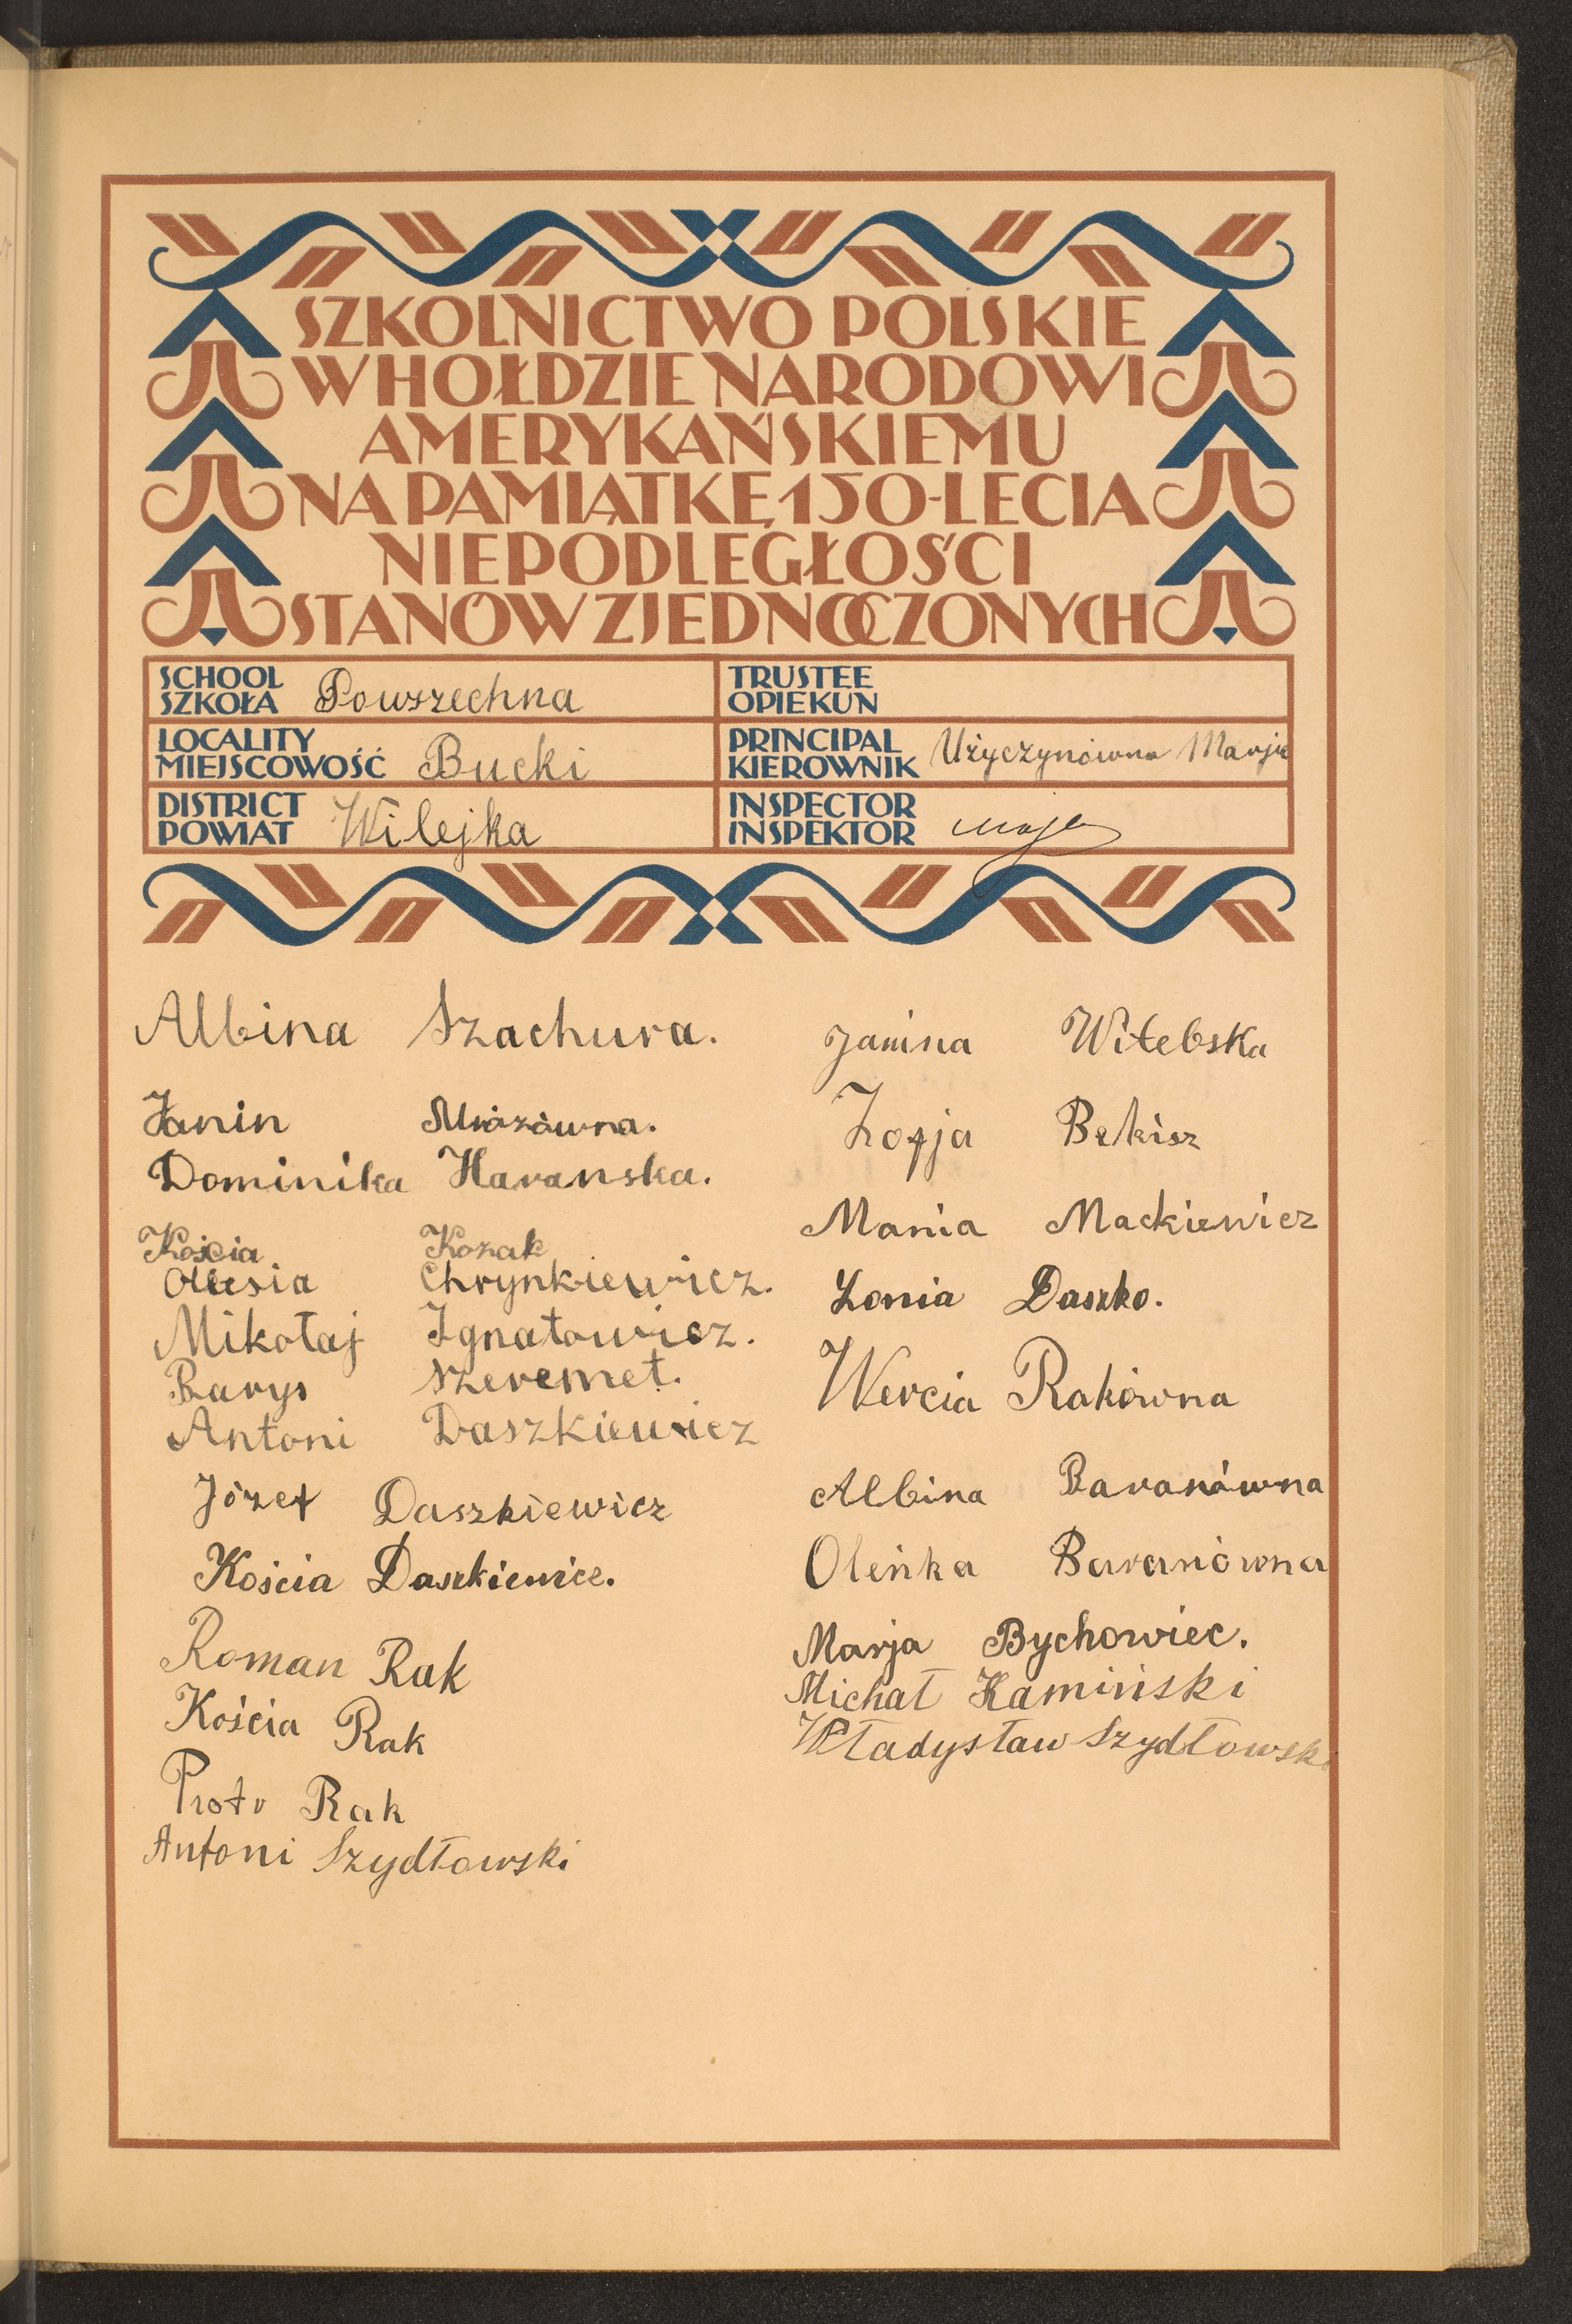 SZKOLNICTWO POLSKIE
W HOŁDZIE NARODOWI
AMERYKAŃSKIEMU
NA PAMIĄTKĘ 150-LECIA
NIEPODLEGŁOŚCI
STANÓW ZJEDNOCZONYCH
SCHOOL
SZKOŁA Powszechna
TRUSTEE
OPIEKUN
LOCALITY
MIEJSCOWOŚĆ Bucki
PRINCIPAL
KIEROWNIK Użyczynówna Marja
DISTRICT
POWIAT Wilejka
INSPECTOR
INSPEKTOR
Albina Szachura.
Janin Mrózówna.
Dominika Haranska.
Kościa Kozak
Olesia Chrynkiewicz.
Mikołaj Ignatowicz.
Barys Szeremet.
Antoni Daszkiewicz
Józef Daszkiewicz
Kościa Daszkiewicz.
Roman Rak
Kościa Rak
Piotr Rak
Antoni Szydłowski
Janina Witebska
Zofja Bekisz
Mania Mackiewicz
Zonia Daszko.
Wercia Rakówna
Albina Baranówna
Oleńka Baranówna
Marja Bychowiec.
Michał Kamiński
Władysław Szydłowski